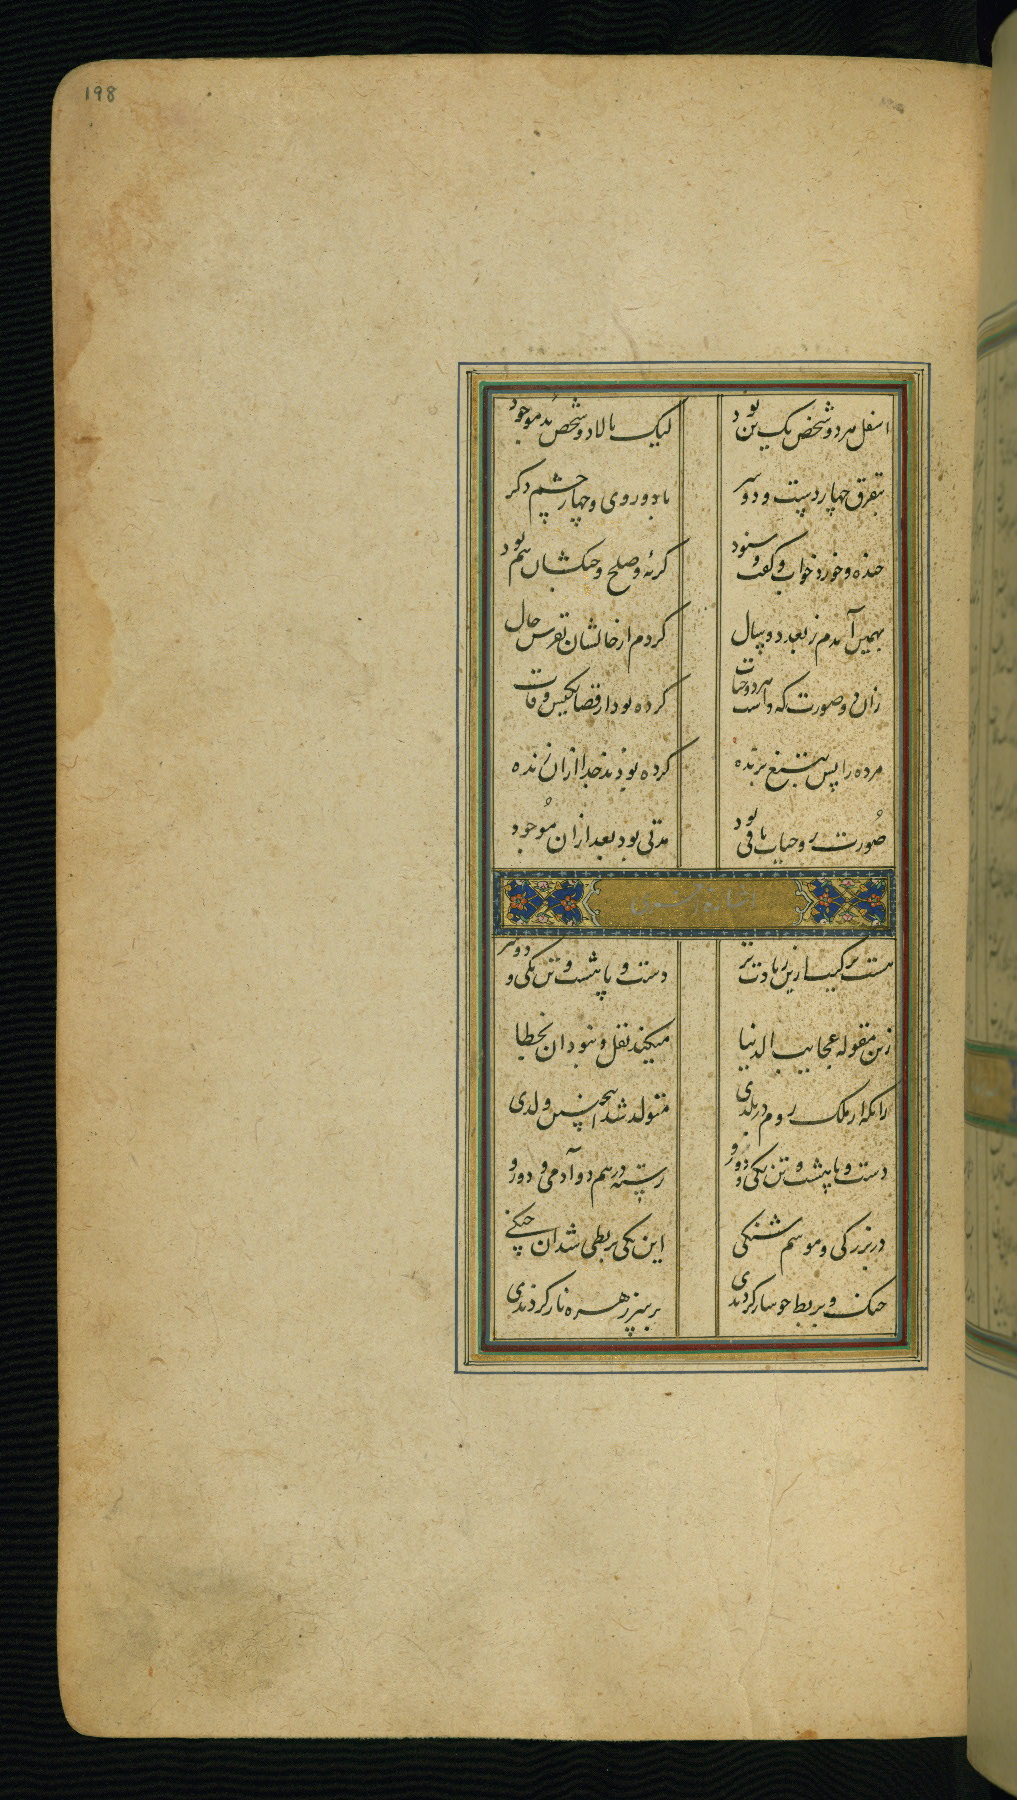 198
اسفل هر دو شخص یک تن بود
لیک بالا دو شخص بد موجود
بتفرق چهار دست و دو سر
با دو روی و چهار چشم دکر
خنده و خورد خواب و کفت و شنود
کریه و صلح و جنکشان هم بود
بهمین آمدم ز بعد دو سال
کردم از حالشان تفرس حال
زان دو صورت که داشت هر دو حیات
کرده بود از قضا یکیش وفات
مرده را پس بتیغ برنده
کرده بودند جدا از آن زنده
صورت روحیات باقی بود
مدتی بود بعد از آن موجود
هست ترکیب ازین زیادت تر
دست و پا پشت و تن یکی و دو سر
زین مقوله عجایب الدنیا
میکند نقل و نبود آن بخطا
زانکه از ملک روم در بلدی
متولد شد اینچنین ولدی
دست و پا پشت و تن یکی و دو رو
رسته درهم دو آدمی و دو رو
در بزرکی و موسم شنکی
این یکی بربطی شد آن چنکی
چنک و بربط چو ساز کردندی
بر سر زهره ناز کردندی